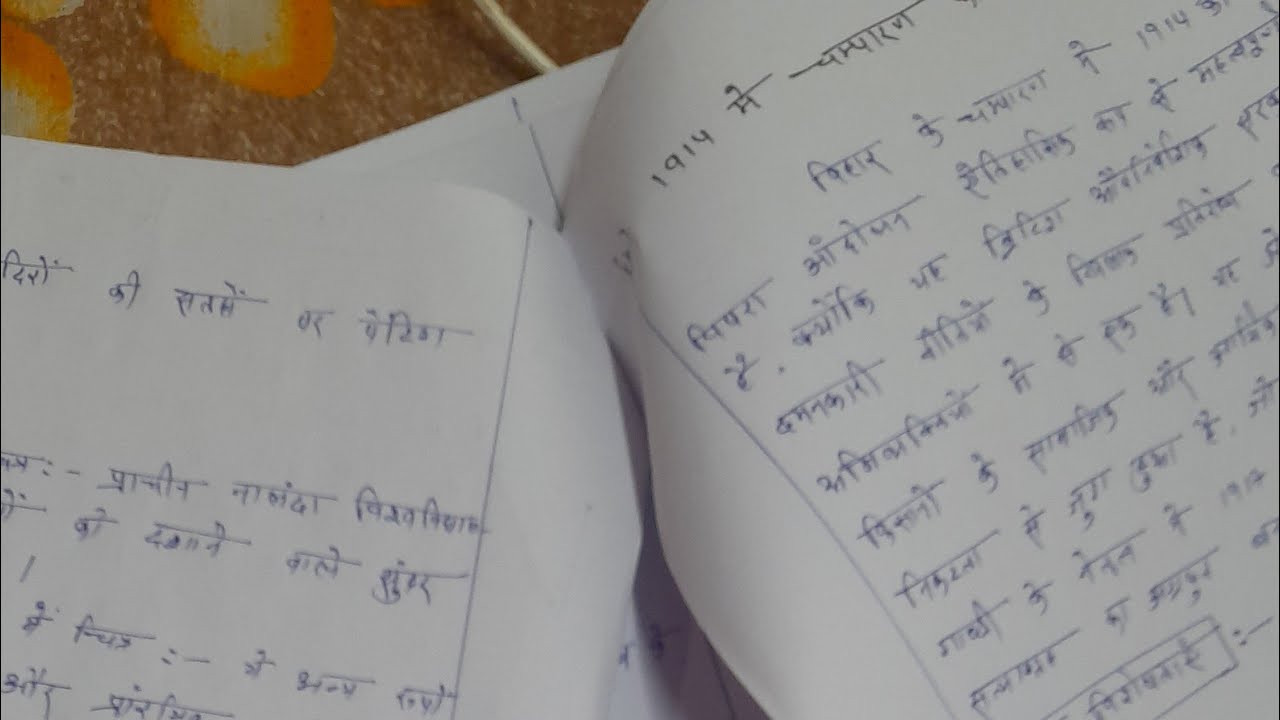 दिरों की सतमें पर पेंटिंग
चित्र :- प्राचीन नालंदा विश्वविद्याल
को दर्शाने वाले सुंदर
।
में चित्र :- में अन्य रूपों
और प्रारंभिक
1914 में चम्पारण
बिहार के चम्पारण में 1914 का
पिपरा आंदोलन ऐतिहासिक का से महत्वपूर्ण
है. क्योंकि यह ब्रिटिश औपनिवेशिक सरका
दमनकारी नीतियों के खिलाफ प्रतिरोध
अभिव्यक्तियों में से एक है। यह
किसानों के सामाजिक और आर्थिक
निकटता से जुड़ा हुआ है, जो
गाँधी के नेतृत्व में 1917
सत्याग्रह का अग्रदूत
विशेषताएँ :-